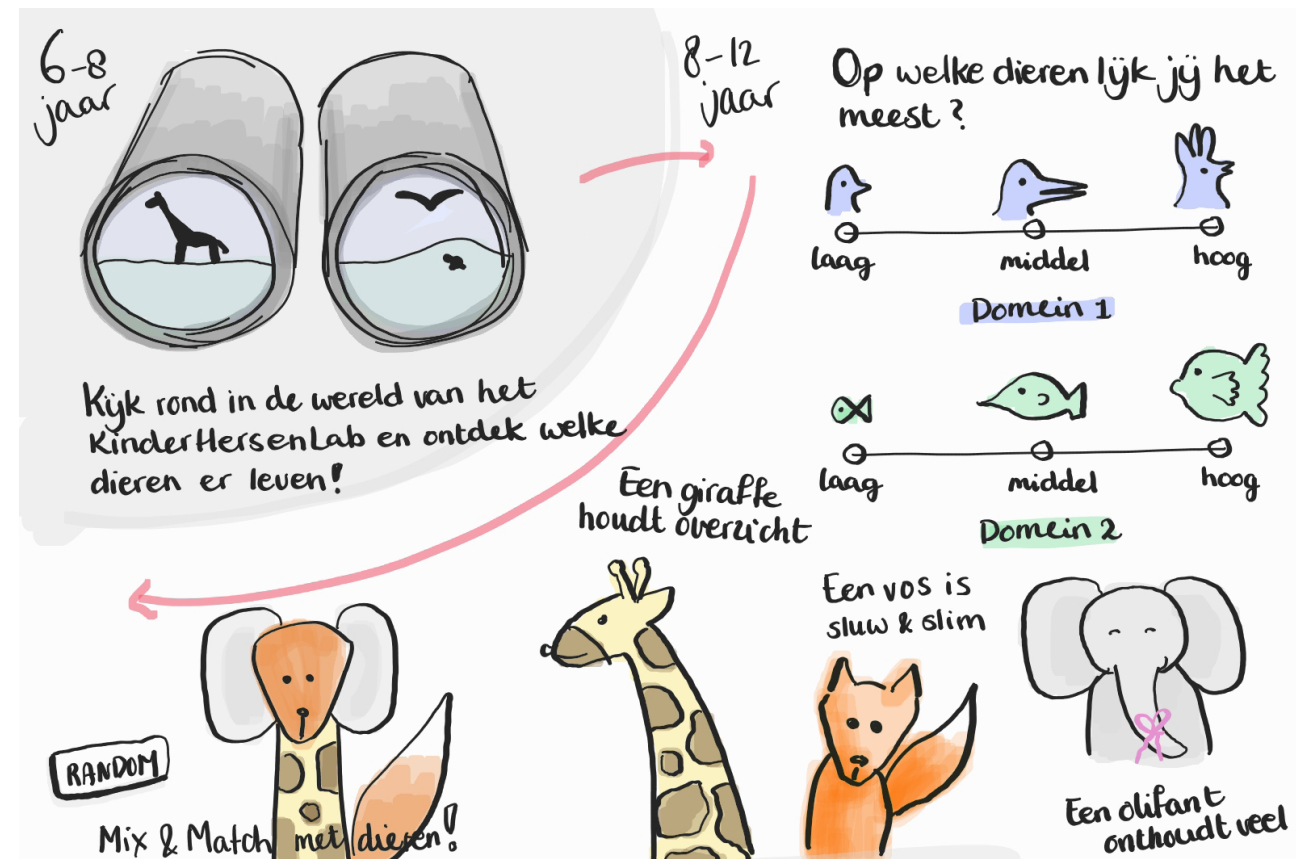 6-8
jaar
Kijk rond in de wereld van het
KinderHersenLab en ontdek welke
dieren er leven!
8-12
jaar
Op welke dieren lijk jij het
meest?
laag
middel
hoog
Domein 1
laag
middel
hoog
Domein 2
Een giraffe
houdt overzicht
Een vos is
sluw & slim
Een olifant
onthoudt veel
RANDOM
Mix & Match met dieren!